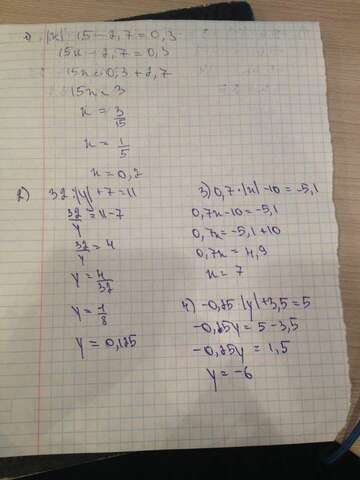 1) |x| · 15 - 2,7 = 0,3
15x - 2,7 = 0,3
15x = 0,3 + 2,7
15x = 3
x = 3/15
x = 1/5
x = 0,2
2) 32 : |y| + 7 = 11
32/y = 11 - 7
32/y = 4
y = 4/32
y = 1/8
y = 0,125
3) 0,7 · |x| - 10 = -5,1
0,7x - 10 = -5,1
0,7x = -5,1 + 10
0,7x = 4,9
x = 7
4) -0,25 |y| + 3,5 = 5
-0,25y = 5 - 3,5
-0,25y = 1,5
y = -6